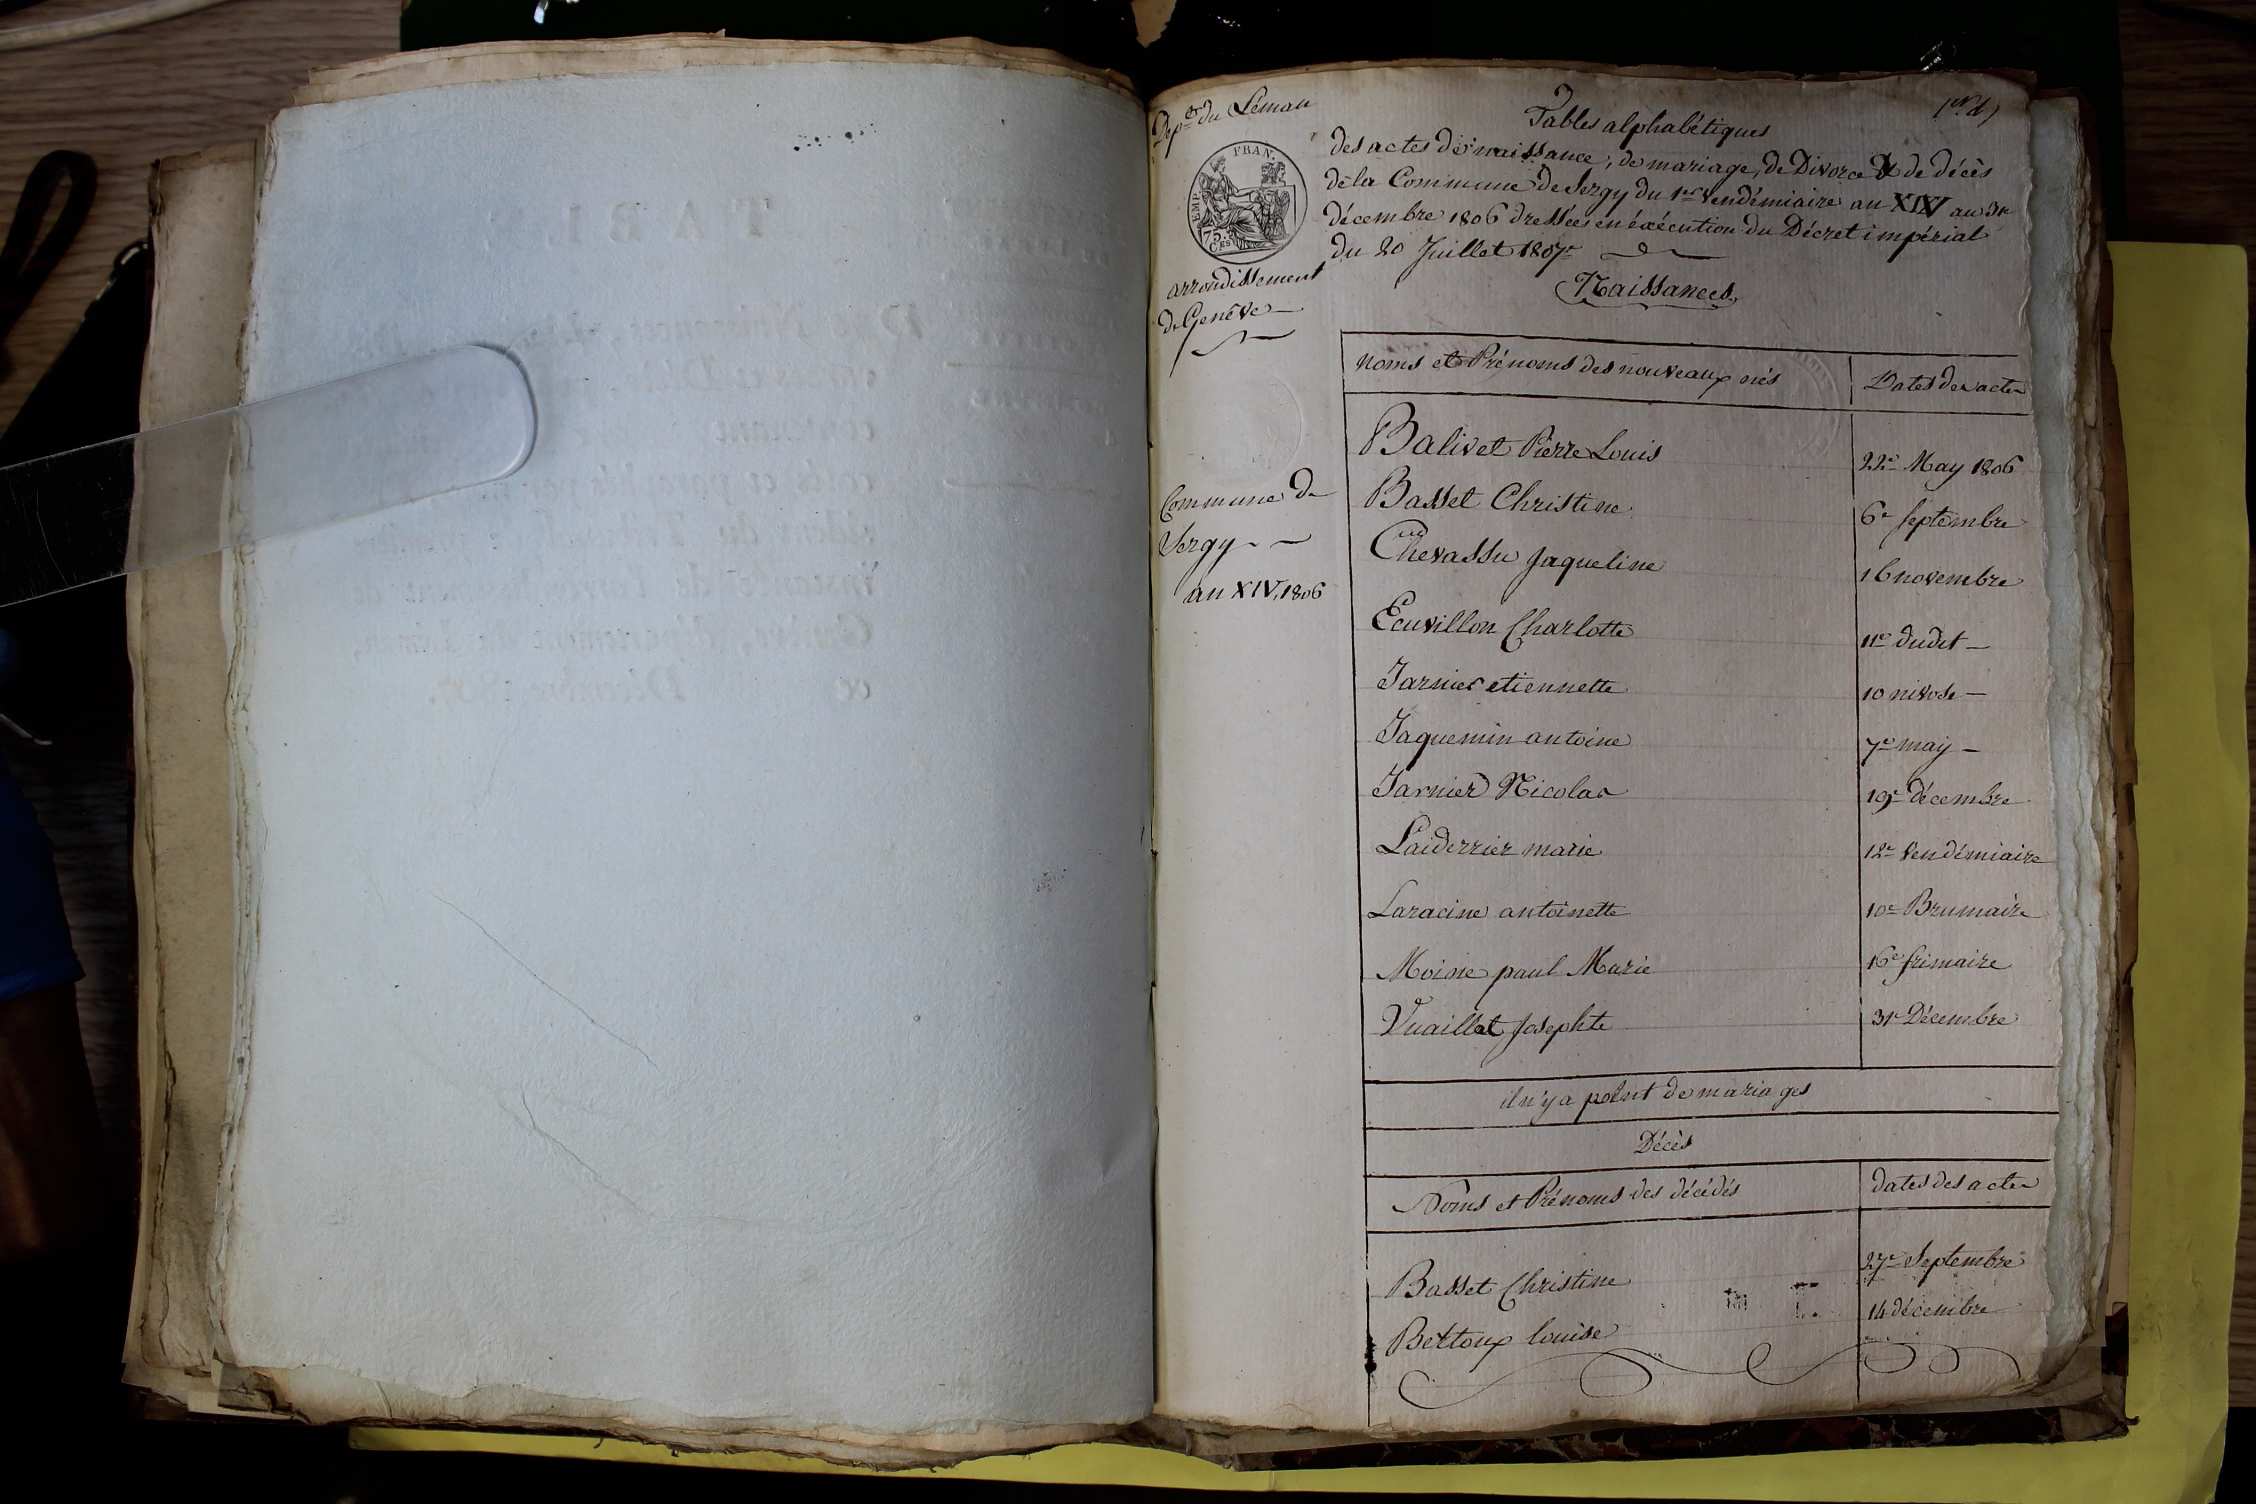 Dépt du Léman
EMP. FRAN.
75. Ces
arrondissement
de Genève
Commune de
Sergy
an XIV, 1806
Tables alphabétiques
des actes de naissance, de mariage, de Divorce & de décès
de la Commune de Sergy du 1er Vendémiaire an XIV au 31e
décembre 1806 dressées en éxécution du Décret impérial
du 20 Juillet 1807
Naissances
Noms et Prénoms des nouveaux nés Dates des actes
Balivet Pierre Louis 22e May 1806
Basset Christine 6e Septembre
Chevassu Jaqueline 16 novembre
Ecuvillon Charlotte 11e dudit
Jarnier etiennette 10 nivose
Jaquemin antoine 7e may
Jarnier Nicolas 19e décembre
Laiderrier marie 12e Vendémiaire
Laracine antoinette 10e Brumaire
Moine paul Marie 16e frimaire
Vuaillet Josephte 31e Décembre
il n'y a point de mariages
Décès
Noms et Prénoms des décédés dates des actes
Basset Christine 27e Septembre
Bettoux louise 14 décembre